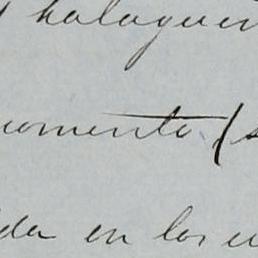 y halaguer
momento (s
da en los u